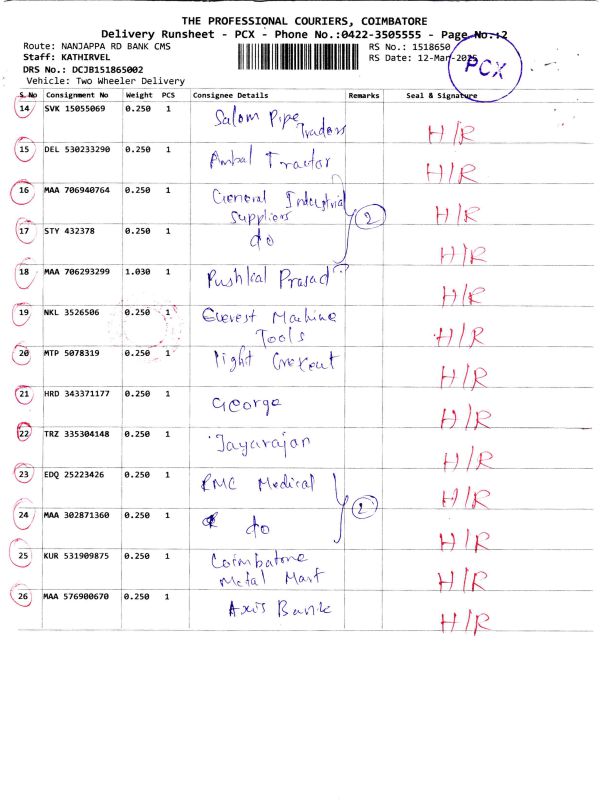 THE PROFESSIONAL COURIERS, COIMBATORE
Delivery Runsheet - PCX - Phone No.:0422-3505555 - Page No.:2
Route: NANJAPPA RD BANK CMS
RS No.: 1518650
Staff: KATHIRVEL
RS Date: 12-Mar-2025
PCX
DRS No.: DCJB151865002
Vehicle: Two Wheeler Delivery
S.No Consignment No Weight PCS Consignee Details Remarks Seal & Signature
14 SVK 15055069 0.250 1 Salom Pipe Traders H/R
15 DEL 530233290 0.250 1 Ambal Tractor H/R
16 MAA 706940764 0.250 1 General Industrial Suppliers 2 H/R
17 STY 432378 0.250 1 do H/R
18 MAA 706293299 1.030 1 Pushkal Prasad H/R
19 NKL 3526506 0.250 1 Everest Machine Tools H/R
20 MTP 5078319 0.250 1 H/R
21 HRD 343371177 0.250 1 George H/R
22 TRZ 335304148 0.250 1 Jayarajan H/R
23 EDQ 25223426 0.250 1 RMC Medical 2 H/R
24 MAA 302871360 0.250 1 do H/R
25 KUR 531909875 0.250 1 Coimbatore Metal Mart H/R
26 MAA 576900670 0.250 1 Axis Bank H/R